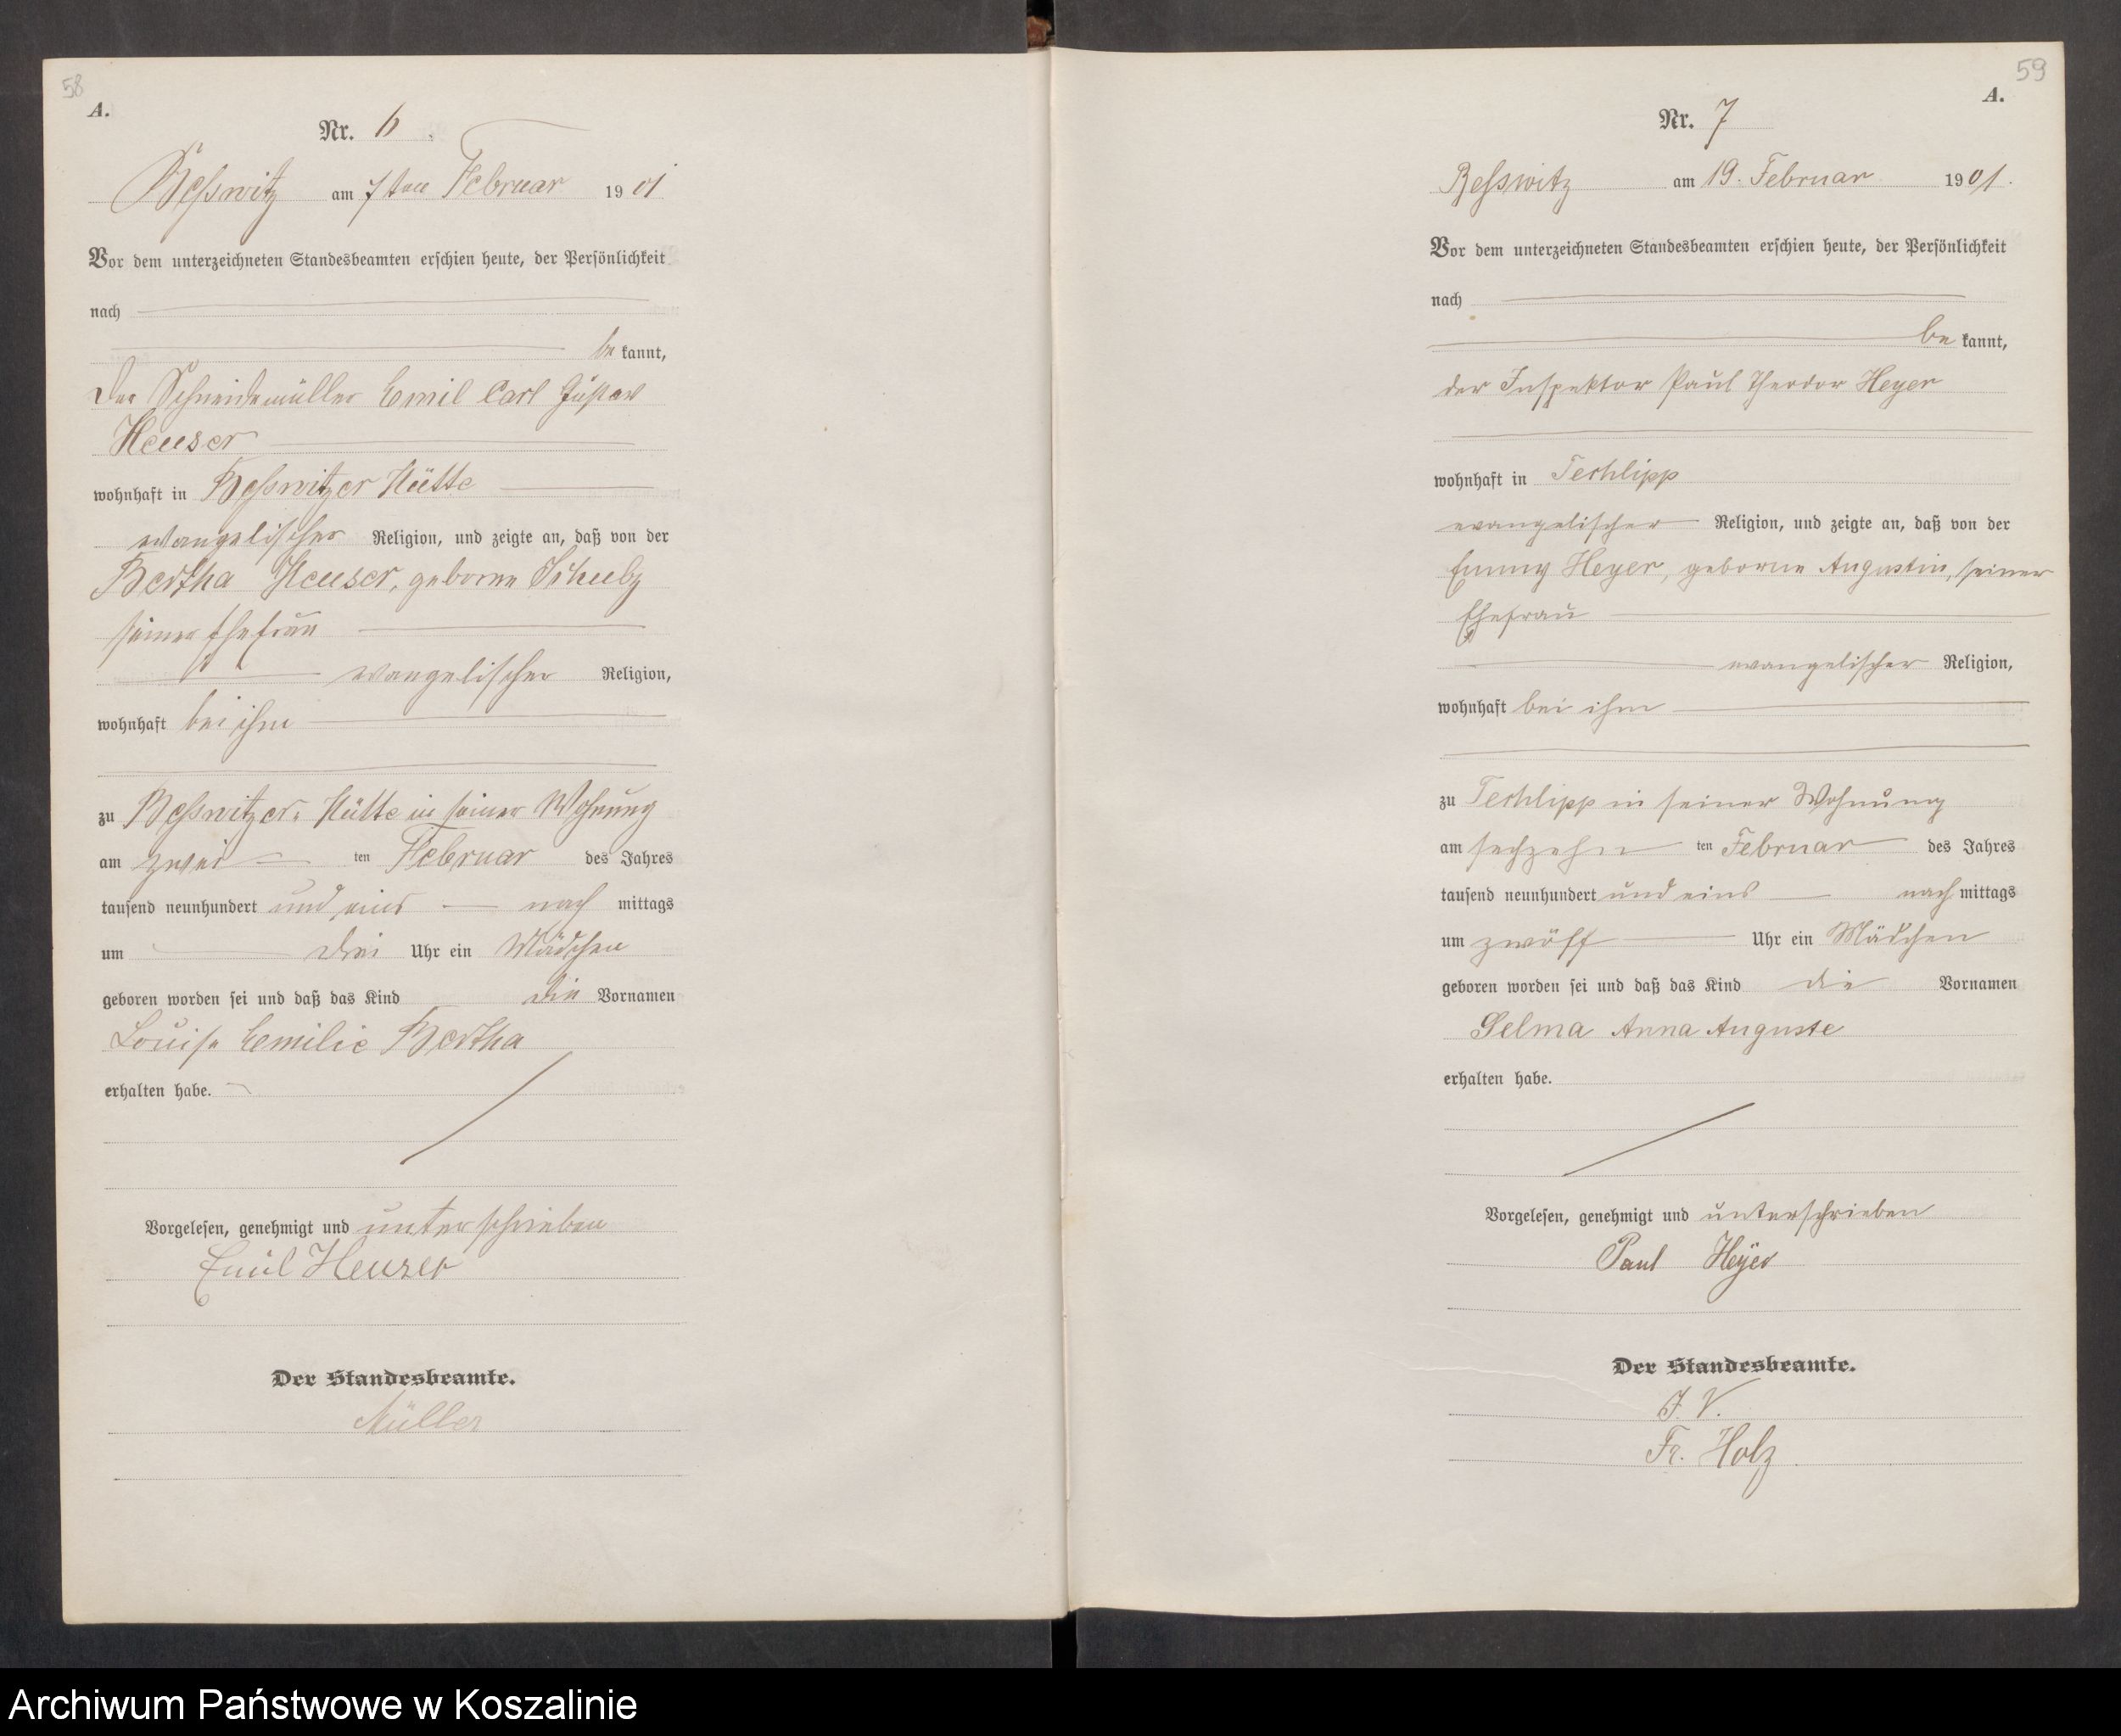 58
A.
Nr. 6.
Beßwitz am 7ten Februar 1901
Vor dem unterzeichneten Standesbeamten erschien heute, der Persönlichkeit
nach
be kannt,
der Schneidemüller Emil Carl Gustav
Heuser
wohnhaft in Beßwitzer Hütte
evangelischer Religion, und zeigte an, daß von der
Bertha Heuser, geborne Schulz
seiner Ehefrau
evangelischer Religion,
wohnhaft bei ihm
zu Beßwitzer Hütte in seiner Wohnung
am zwei ten Februar des Jahres
tausend neunhundert und eins nach mittags
um drei Uhr ein Mädchen
geboren worden sei und daß das Kind die Vornamen
Louise Emilie Bertha
erhalten habe.
Vorgelesen, genehmigt und unterschrieben
Emil Heuser
Der Standesbeamte.
Müller
59
A.
Nr. 7
Beßwitz am 19. Februar 1901.
Vor dem unterzeichneten Standesbeamten erschien heute, der Persönlichkeit
nach
be kannt,
der Inspektor Paul Theodor Heyer
wohnhaft in Techlipp
evangelischer Religion, und zeigte an, daß von der
Emmy Heyer, geborne Augustin, seiner
Ehefrau
evangelischer Religion,
wohnhaft bei ihm
zu Techlipp in seiner Wohnung
am sechzehn ten Februar des Jahres
tausend neunhundert und eins nach mittags
um zwölf Uhr ein Mädchen
geboren worden sei und daß das Kind die Vornamen
Selma Anna Auguste
erhalten habe.
Vorgelesen, genehmigt und unterschrieben
Paul Heyer
Der Standesbeamte.
J. V.
Fr. Holz
Archiwum Państwowe w Koszalinie